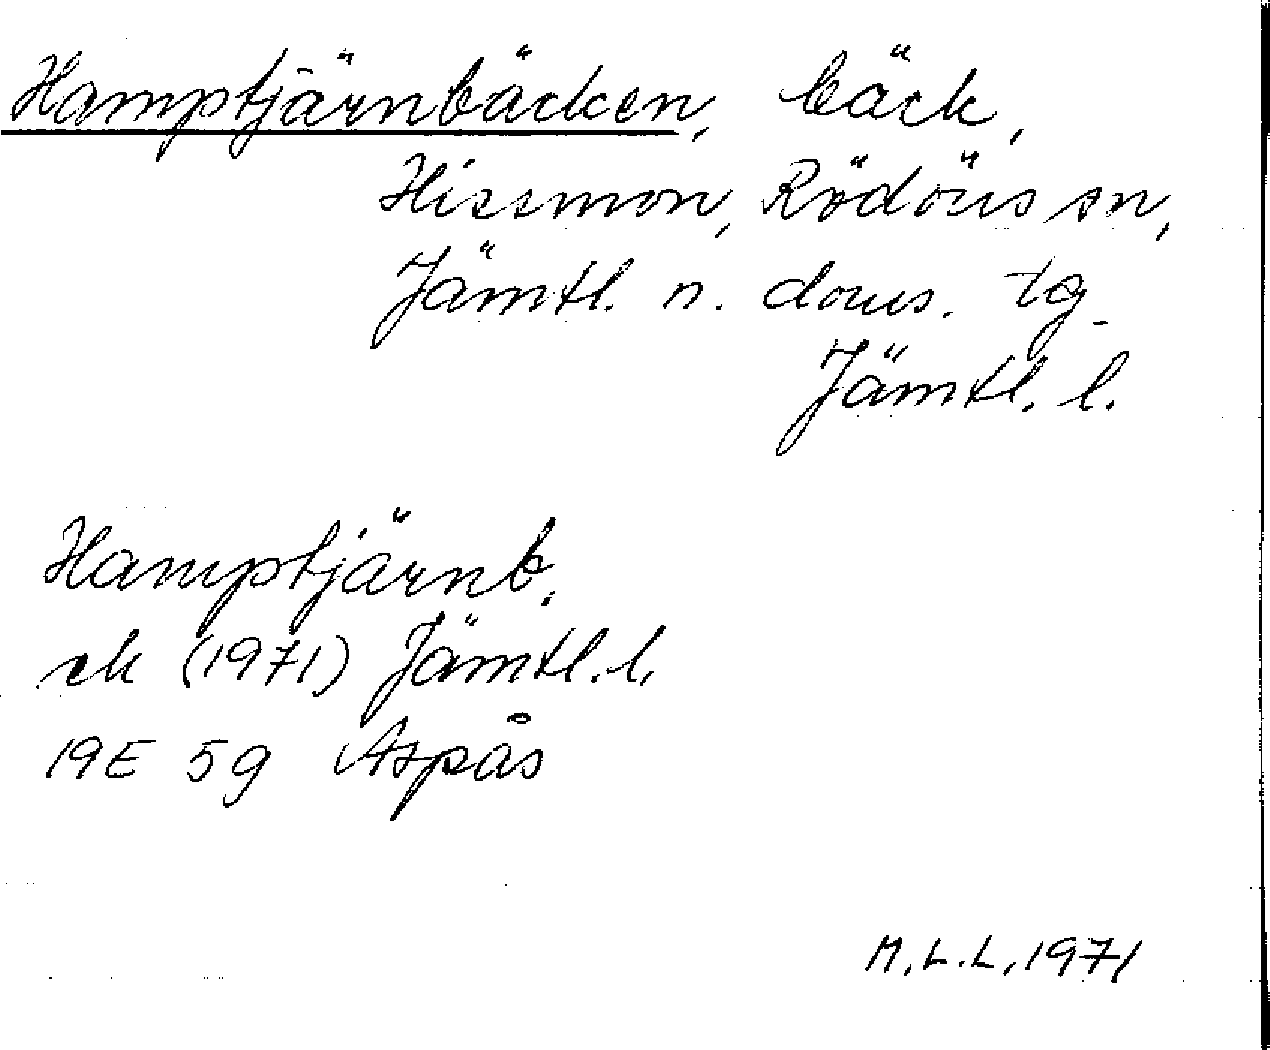 Hamptjärnbäcken, bäck,
Hissmon, Rödöns sn,
Jämtl. n. doms. tg
Jämtl. l.
Hamptjärnb.
ek (1971) Jämtl. l.
19E 5g Aspås
M.L.L. 1971